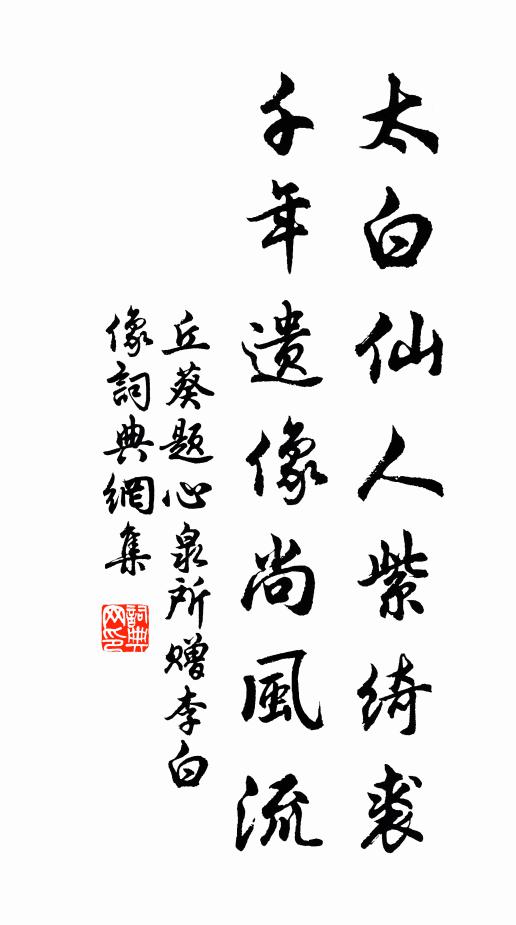 太白仙人紫綺裘
千年遺像尚風流
丘葵題心泉所贈李白
像詞典網集
詞典
网印